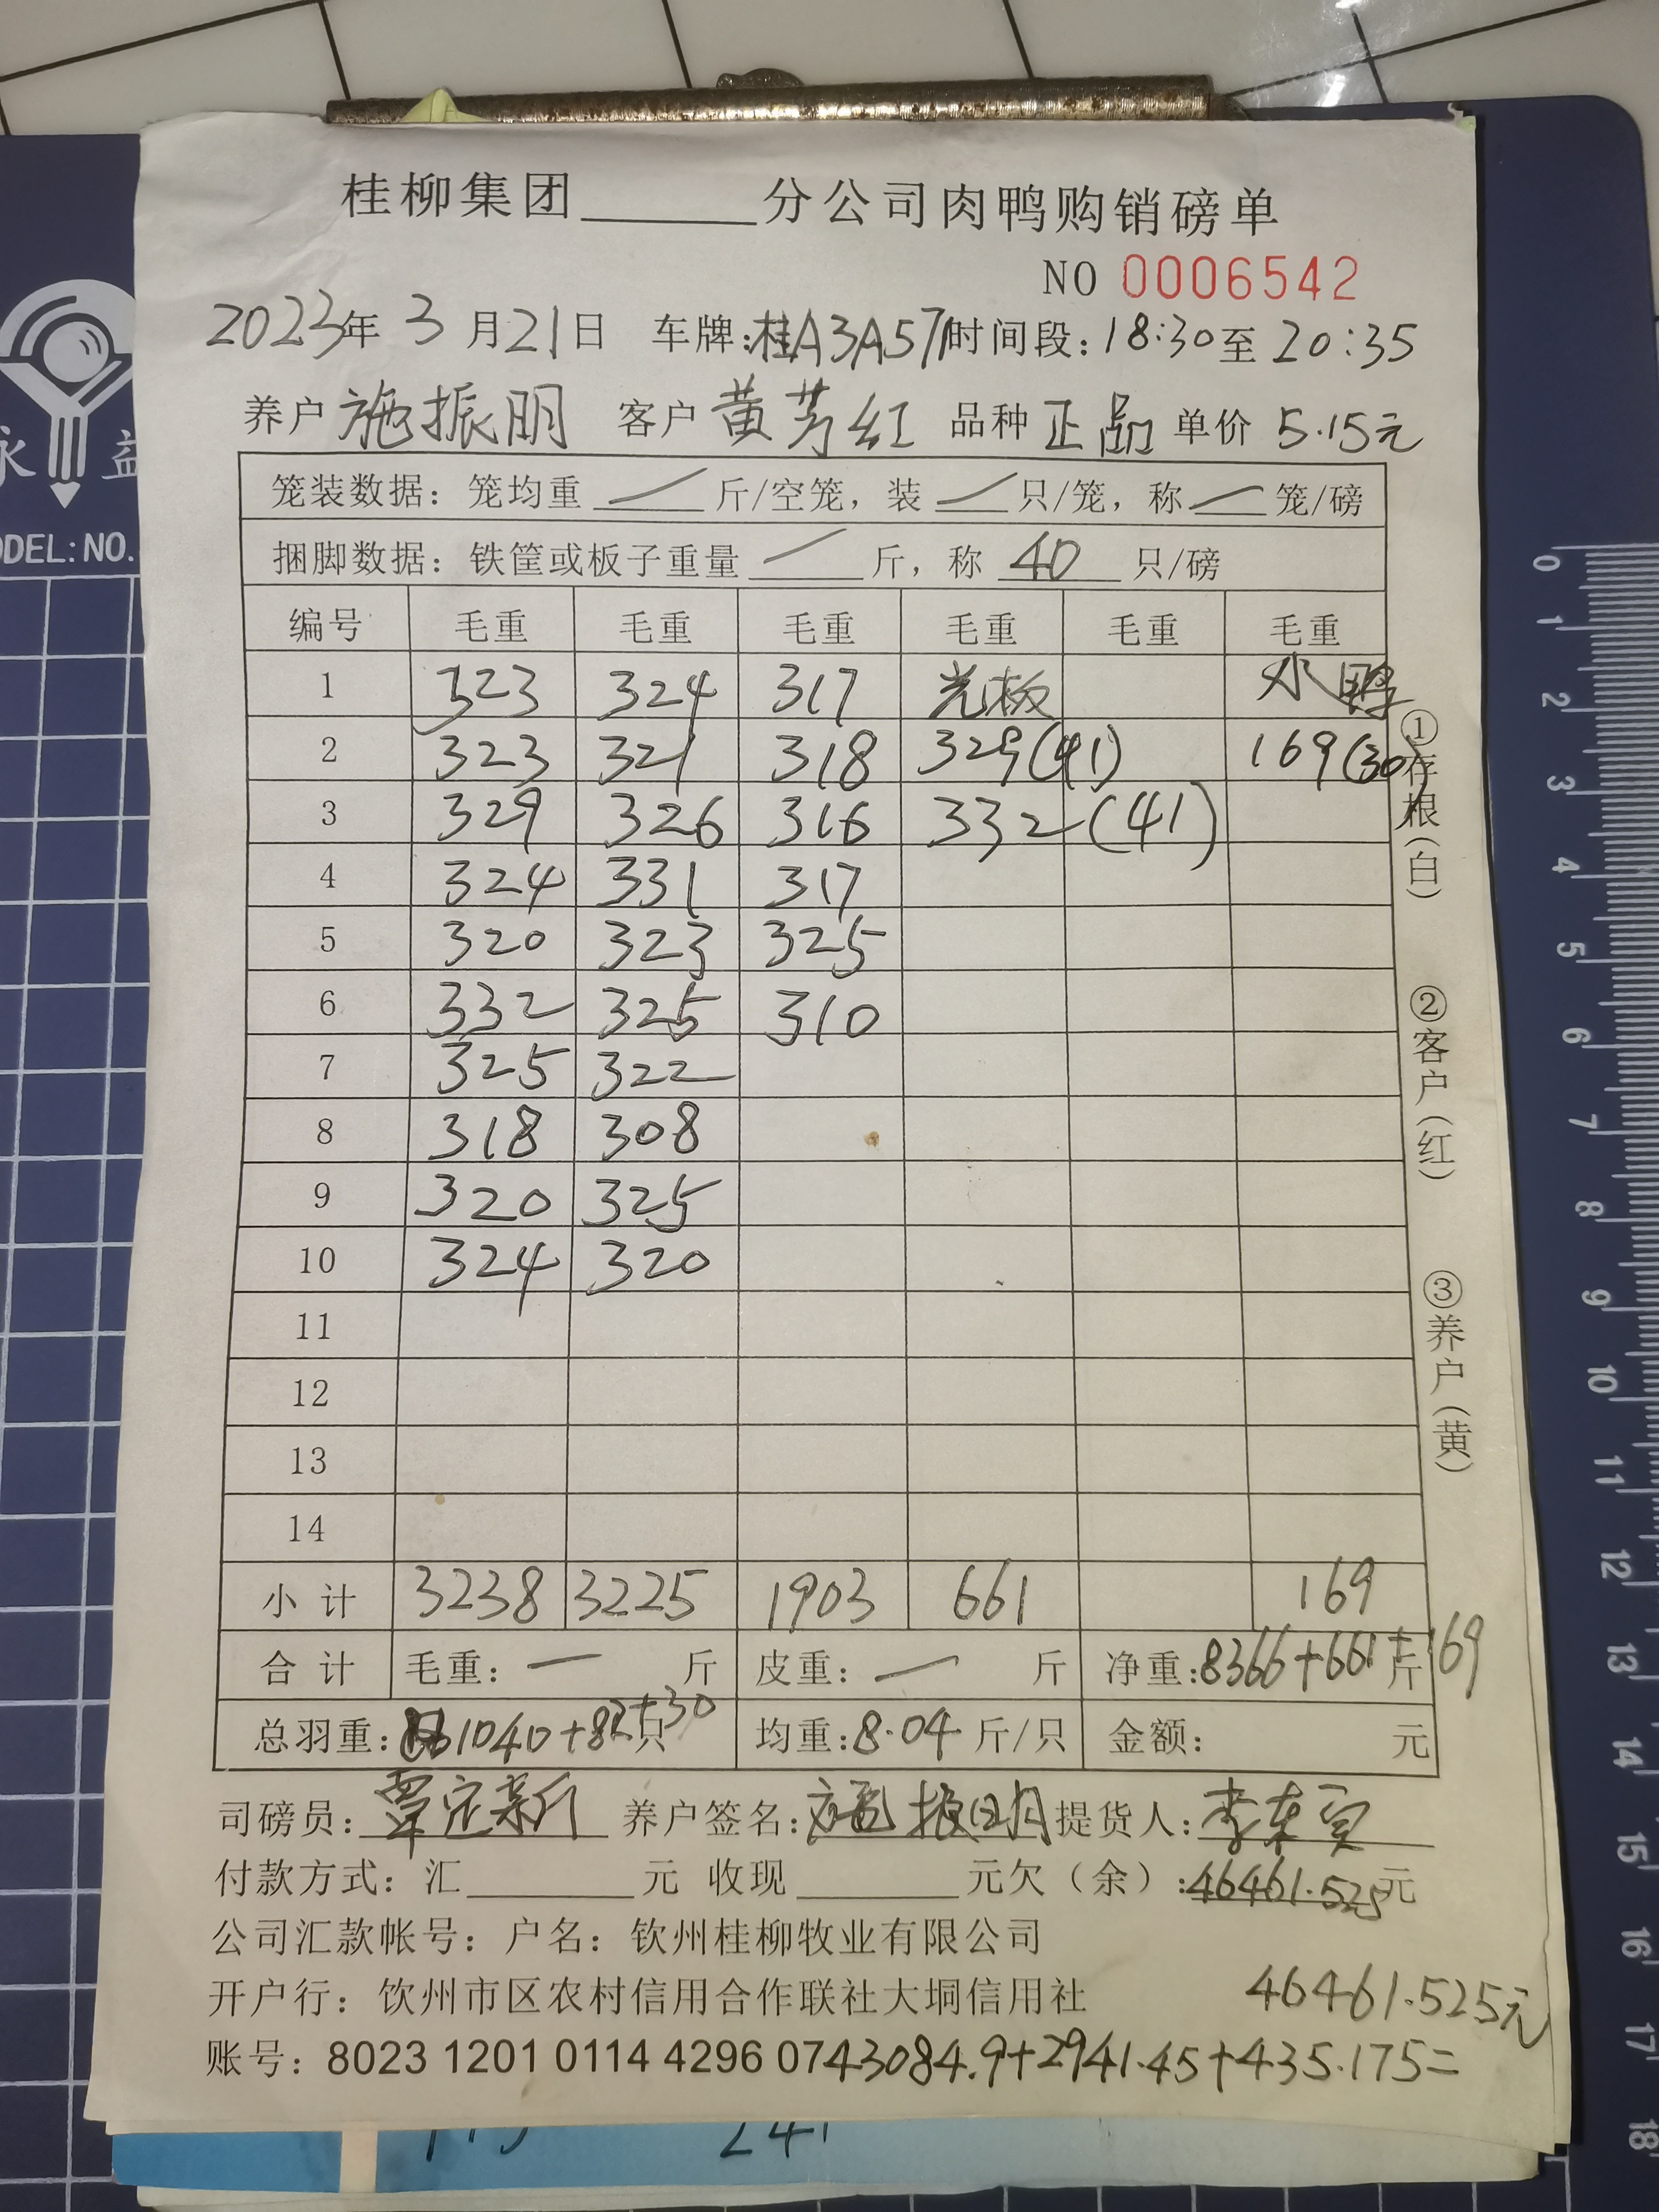 桂柳集团______分公司肉鸭购销磅单
NO 0006542
2023年 3 月21日 车牌:桂A3A571时间段:18:30至 20:35
养户 施振明 客户 黄芳红 品种 正品 单价 5.15元
笼装数据: 笼均重 — 斤/空笼, 装 — 只/笼, 称 — 笼/磅
捆脚数据: 铁筐或板子重量 — 斤, 称 40 只/磅
编号 毛重 毛重 毛重 毛重 毛重 毛重
1 323 324 317 光板 水鸭
2 323 321 318 329(41) 169(30)
3 329 326 316 332(41)
4 324 331 317
5 320 323 325
6 332 325 310
7 325 322
8 318 308
9 320 325
10 324 320
11
12
13
14
小计 3238 3225 1903 661 169
合计 毛重: — 斤 皮重: — 斤 净重:8366+661+169斤
总羽重: 1040+82+30只 均重:8.04 斤/只 金额: 元
司磅员: 覃定新 养户签名: 施振明 提货人:
付款方式: 汇______元 收现______元欠(余):46461.525元
公司汇款帐号: 户名: 钦州桂柳牧业有限公司
开户行: 钦州市区农村信用合作联社大垌信用社 46461.525元
账号: 8023 1201 0114 4296 07 43084.9+2941.45+435.175=
①存根(白) ②客户(红) ③养户(黄)
永益
MODEL:NO.
0 1 2 3 4 5 6 7 8 9 10 11 12 13 14 15 16 17 18
241